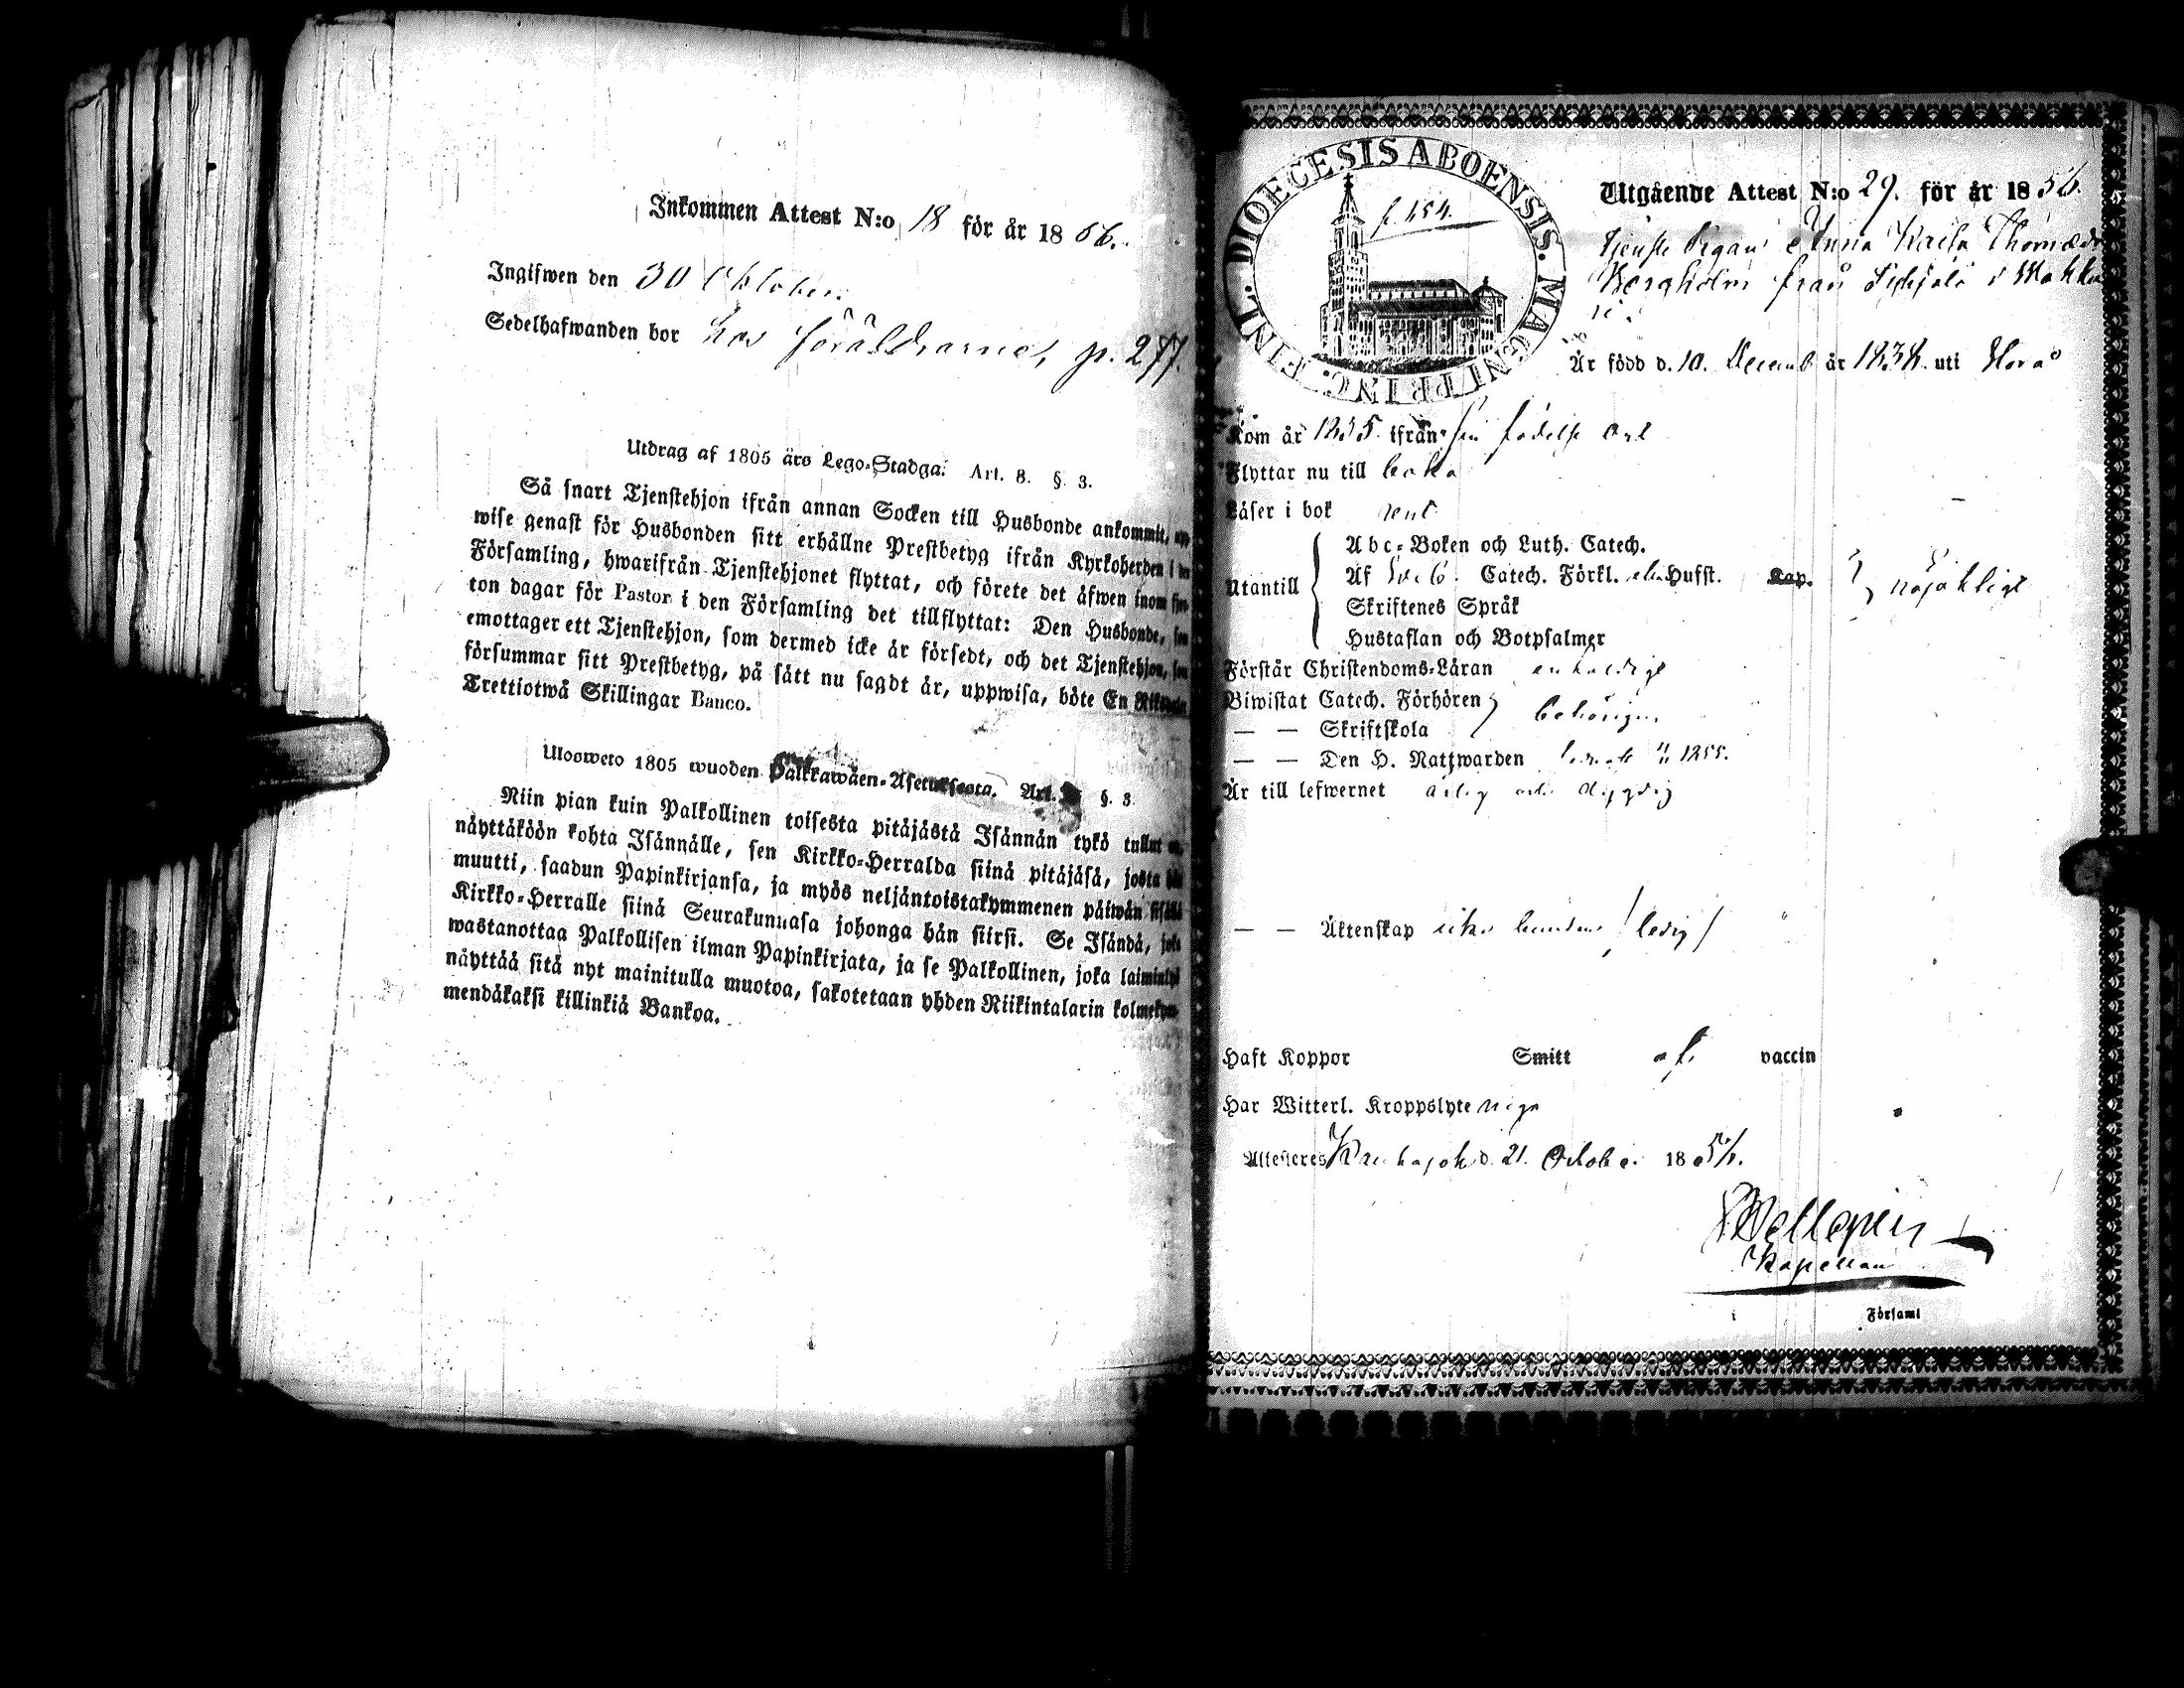 Inkommen Attest N:o 18 för år 1856.
Ingifwen den 30 Oktober.
Sedelhafwanden bor hos föräldrarne, p. 277.
Utdrag af 1805 års Lego-Stadga. Art. 8. §. 3.
Så snart Tjenstehjon ifrån annan Socken till Husbonde ankommit, upp-
wise genast för Husbonden sitt erhållne Prestbetyg ifrån Kyrkoherden i den
Församling, hwarifrån Tjenstehjonet flyttat, och förete det äfwen inom fjor-
ton dagar för Pastor i den Församling det tillflyttat: Den Husbonde, som
emottager ett Tjenstehjon, som dermed icke är försedt, och det Tjenstehjon, som
försummar sitt Prestbetyg, på sätt nu sagdt är, uppwisa, böte En Riksdaler
Trettiotwå Skillingar Banco.
Ulosweto 1805 wuoden Palkkawäen-Asetuksesta. Art. §. 3.
Niin pian kuin Palkollinen toisesta pitäjästä Isännän tykö tullut on,
näyttäköön kohta Isännälle, sen Kirkko-Herralda siinä pitäjäsä, josta hän
muutti, saadun Papinkirjansa, ja myös neljäntoistakymmenen päiwän sisällä
Kirkko-Herralle siinä Seurakunnasa johonga hän siirsi. Se Isändä, joka
wastanottaa Palkollisen ilman Papinkirjata, ja se Palkollinen, joka laiminlyö
näyttää sitä nyt mainitulla muotoa, sakotetaan yhden Riikintalarin kolmekym-
mendäkaksi killinkiä Bankoa.
FINL. DIOECESIS ABOENSIS. MAGNI PRINC.
f. 154.
Utgående Attest N:o 29. för år 1856.
Tjenste Pigan Anna Kajsa Thomædr
Bergholm från i
Är född d. 10. Decemb år 1838. uti
Kom år 1855. ifrån sin födelse ort
Flyttar nu till
Läser i bok rent
Utantill
Abc-Boken och Luth. Catech.
Af Sveb. Catech. Förkl. Hufst. Kap.
Skriftenes Språk
Hustaflan och Botpsalmer
nöjaktligt
Förstår Christendoms-Läran enfaldigt
Biwistat Catech. Förhören
— — Skriftskola
behörigen
— — Den H. Nattwarden 1855.
Är till lefwernet ärlig och dygdig
— — Äktenskap icke bunden /ledig/
Haft Koppor Smitt af vaccin
Har Witterl. Kroppslyte inga
Attesteres Kauhajoki d. 21. October 1856.
Wellenius
Kapellan
i Församl